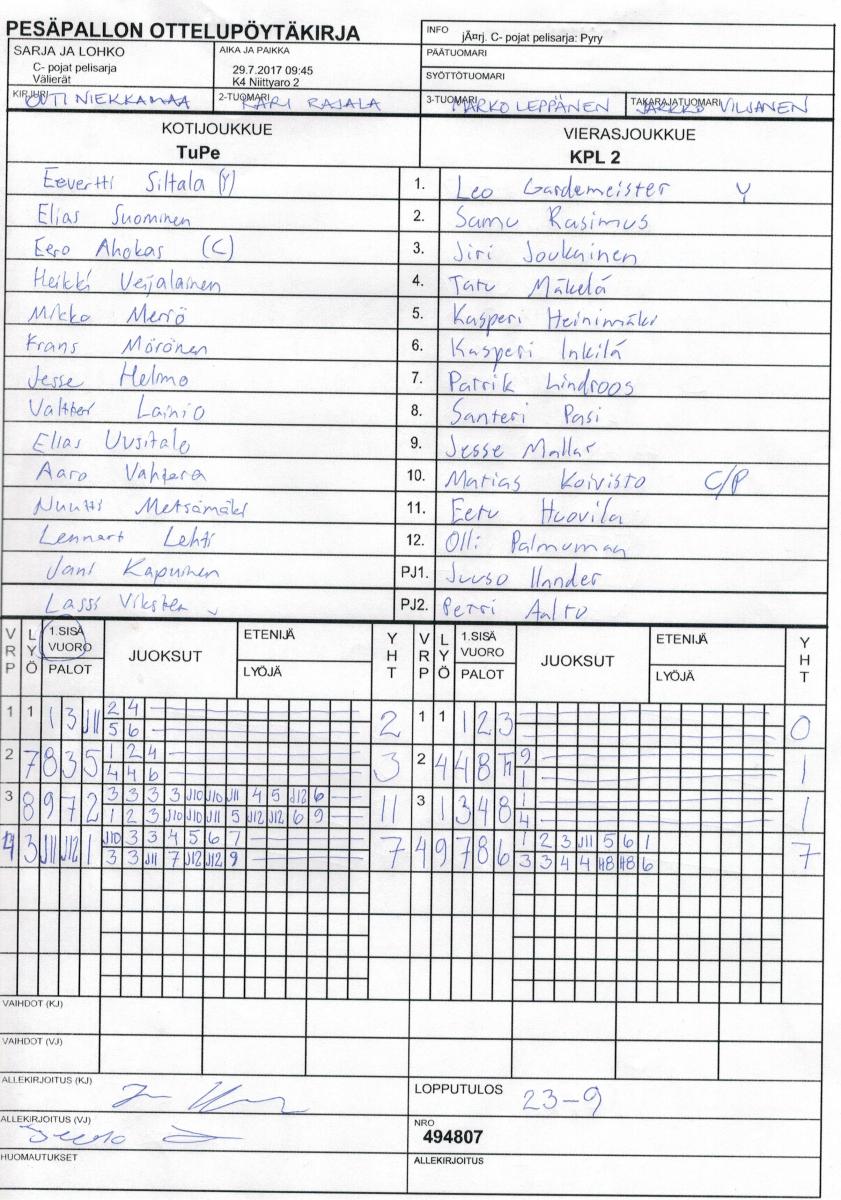 PESÄPALLON OTTELUPÖYTÄKIRJA
INFO jÄ¤rj. C- pojat pelisarja: Pyry
SARJA JA LOHKO
C- pojat pelisarja
Välierät
AIKA JA PAIKKA
29.7.2017 09:45
K4 Niittyaro 2
PÄÄTUOMARI
SYÖTTÖTUOMARI
KIRJURI OUTI NIEKKAMAA
2-TUOMARI KARI RAJALA
3-TUOMARI MARKO LEPPÄNEN
TAKARAJATUOMARI JARKKO VILJANEN
KOTIJOUKKUE
TuPe
VIERASJOUKKUE
KPL 2
Eevertti Siltala (Y) 1. Leo Gardemeister Y
Elias Suominen 2. Samu Rasimus
Eero Ahokas (C) 3. Jiri Joukainen
Heikki Veijalainen 4. Tatu Mäkelä
Mikko Meriö 5. Kasperi Heinimäki
Frans Mörönen 6. Kasperi Inkilä
Jesse Helmo 7. Patrik Lindroos
Valtteri Lainio 8. Santeri Pasi
Elias Uusitalo 9. Jesse Mallat
Aaro Vahtera 10. Matias Koivisto C/P
Nuutti Metsämäki 11. Eetu Huovila
Lennart Lehti 12. Olli Palmumaa
Jani Kapuinen PJ1. Juuso
Lassi PJ2. Petri Aalto
VRP LYÖ 1.SISÄ VUORO PALOT JUOKSUT ETENIJÄ LYÖJÄ YHT VRP LYÖ 1.SISÄ VUORO PALOT JUOKSUT ETENIJÄ LYÖJÄ YHT
1 1 1 3 J11 2 4 2 1 1 1 2 3 0
5 6
2 7 8 3 5 1 2 4 3 2 4 4 8 9 1
4 4 6 1
3 8 9 7 2 3 3 3 3 J10 J10 J11 4 5 J12 6 11 3 1 3 4 8 1 1
1 2 3 J10 J10 J11 5 J12 J12 6 9 4
4 3 J11 J12 1 J10 3 3 4 5 6 7 7 4 9 7 8 6 1 2 3 J11 5 6 1 7
3 3 J11 7 J12 J12 9 3 3 4 4 H8 H8 6
VAIHDOT (KJ)
VAIHDOT (VJ)
ALLEKIRJOITUS (KJ)
LOPPUTULOS 23-9
ALLEKIRJOITUS (VJ)
NRO
494807
HUOMAUTUKSET
ALLEKIRJOITUS